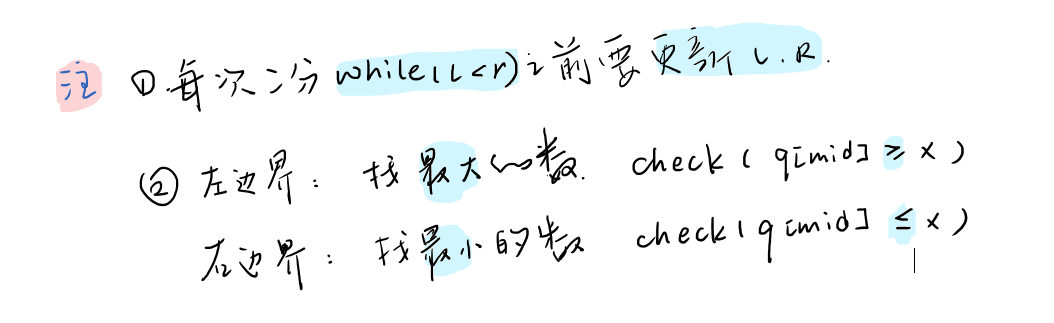 注 ① 每次二分 while(l<r) 之前要更新 L.R.
② 左边界: 找最大的数. check ( q[mid] ≥ x )
右边界: 找最小的数 check ( q[mid] ≤ x )